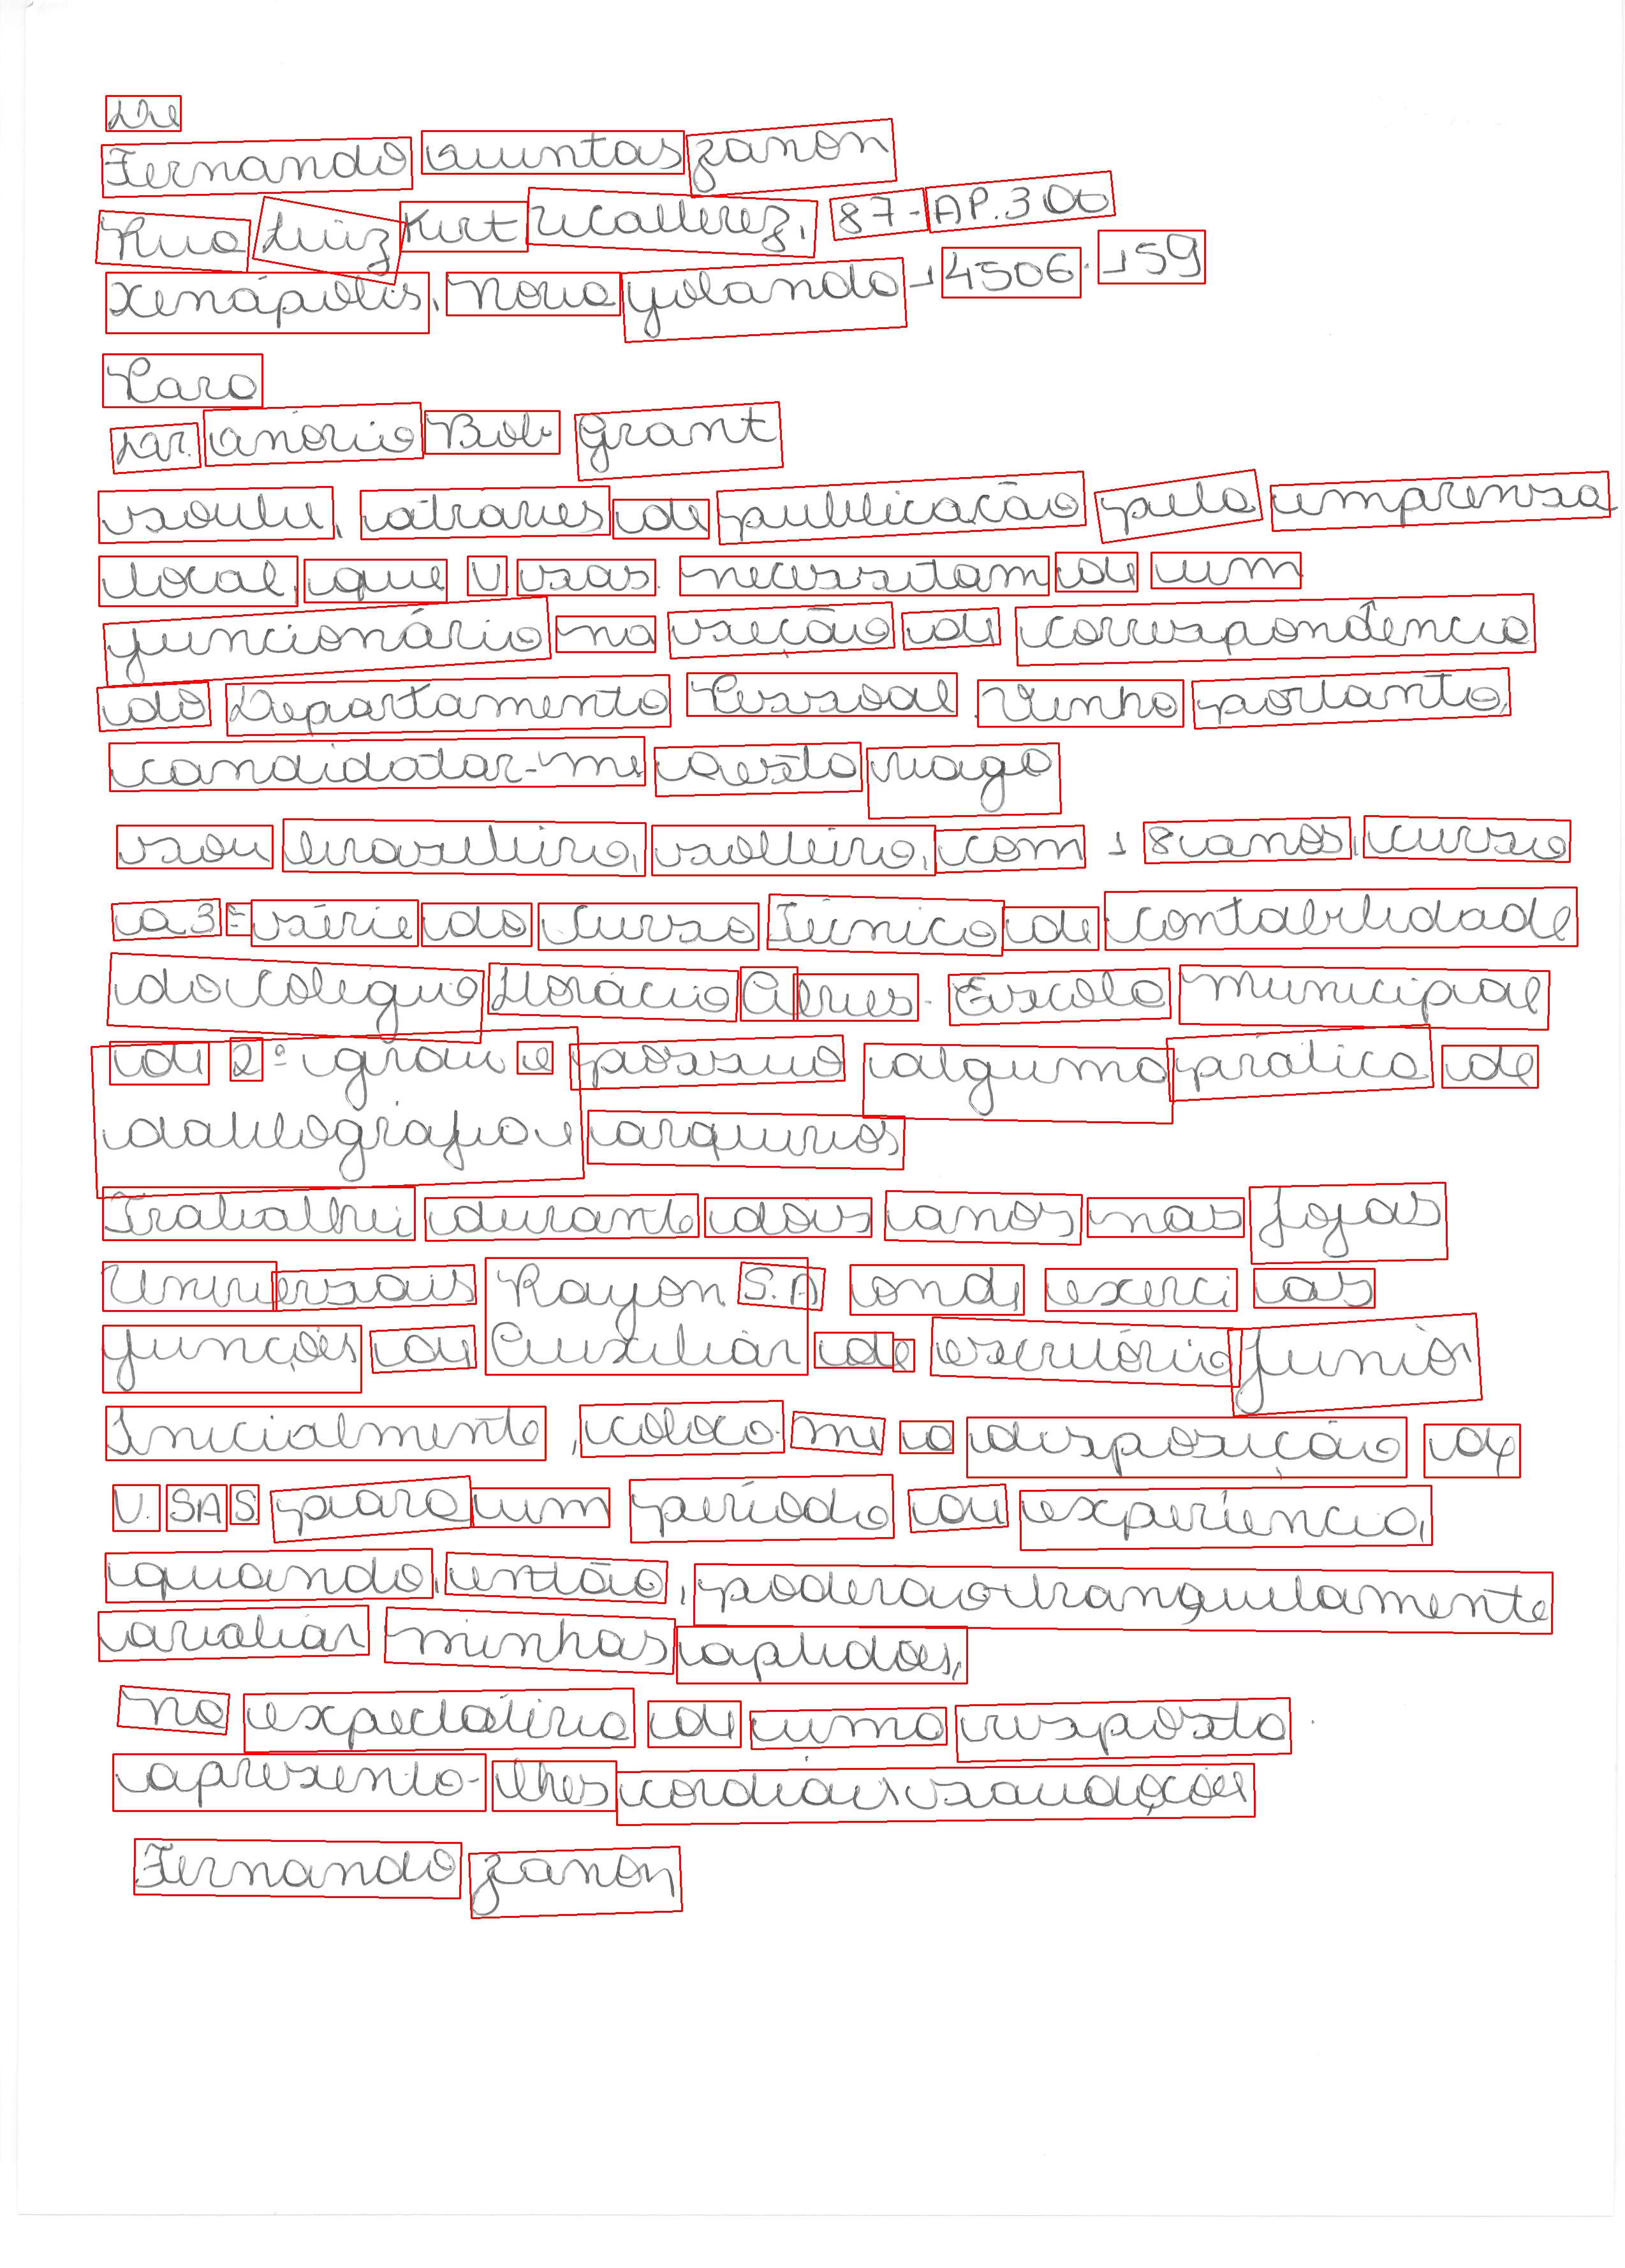 De
Fernando Quintas Zanon
Rua Luiz Kurt Wallerez, 87-AP.306
Xenápolis, Nova Yolanda-14506-159
Para
Dr. Onório Bob Grant
soube, através de publicação pela imprensa
local, que V. sas. necessitam de um
funcionário na seção de correspondência
do Departamento Pessoal. Venho portanto,
candidatar-me a esta vaga
sou brasileiro, solteiro, com 18 anos, curso
a 3ª série do Curso Técnico de contabilidade
do colégio Horácio Alves - Escola Municipal
de 2º grau e possuo alguma prática de
datilografia e arquivos
Trabalhei durante dois anos nas Lojas
Universais Rayon S.A onde exerci as
funções de Auxiliar de escritório Junior
Inicialmente, coloco-me a disposição de
V. SAS. para um período de experiência,
quando, então, poderão tranquilamente
avaliar minhas aptidões,
na expectativa de uma resposta
apresento-lhes cordiais saudações
Fernando Zanon